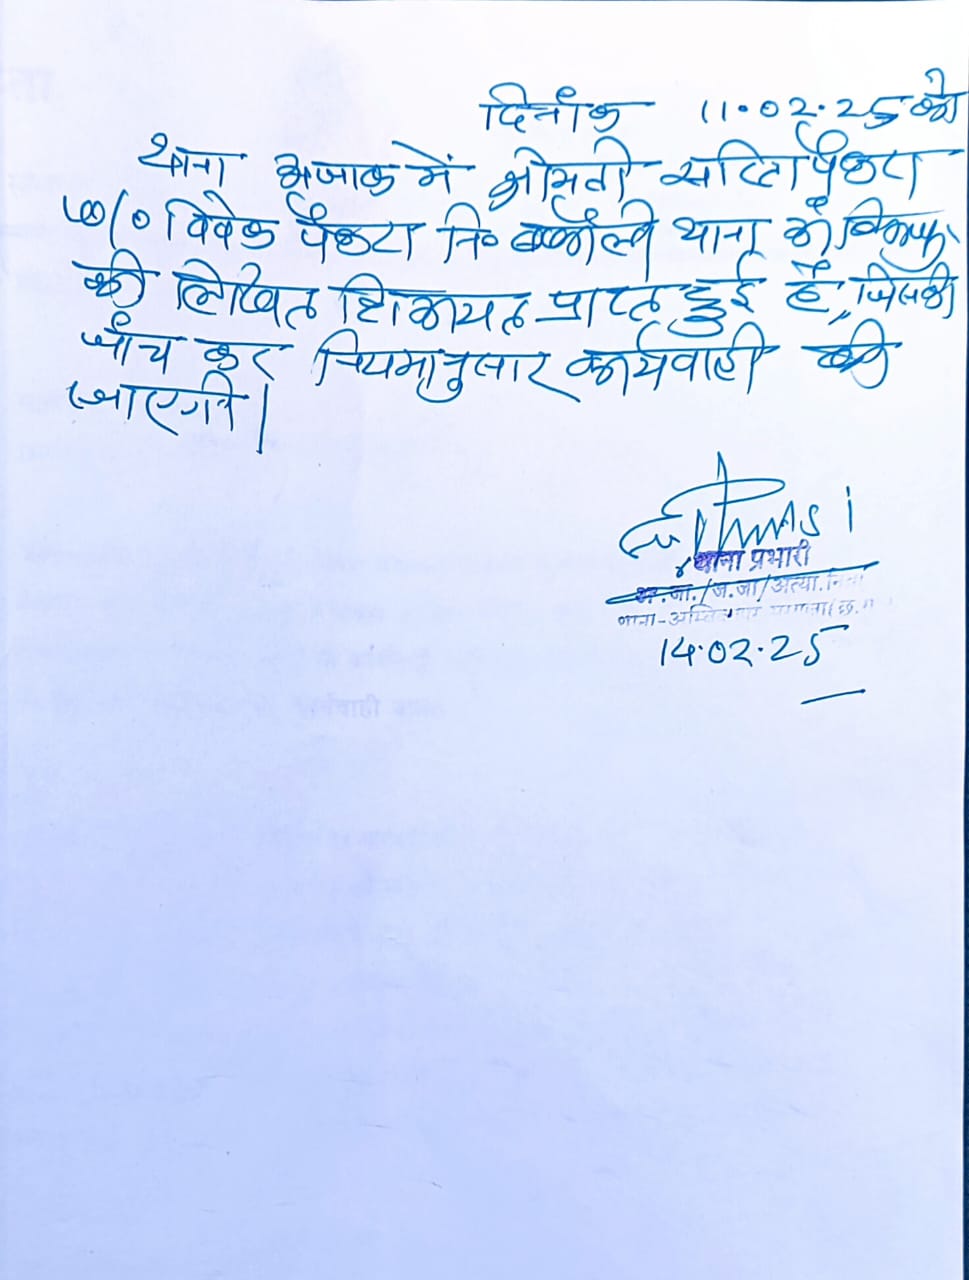 दिनांक 11.02.25 को
थाना अजाक में श्रीमती सरिता पैकरा
W/o विवेक पैकरा नि० थाना के
की लिखित शिकायत प्राप्त हुई है, जिसकी
जाँच कर नियमानुसार कार्यवाही की
जाएगी।
थाना प्रभारी
अ.जा./ज.जा/अत्या.
थाना-
14.02.25